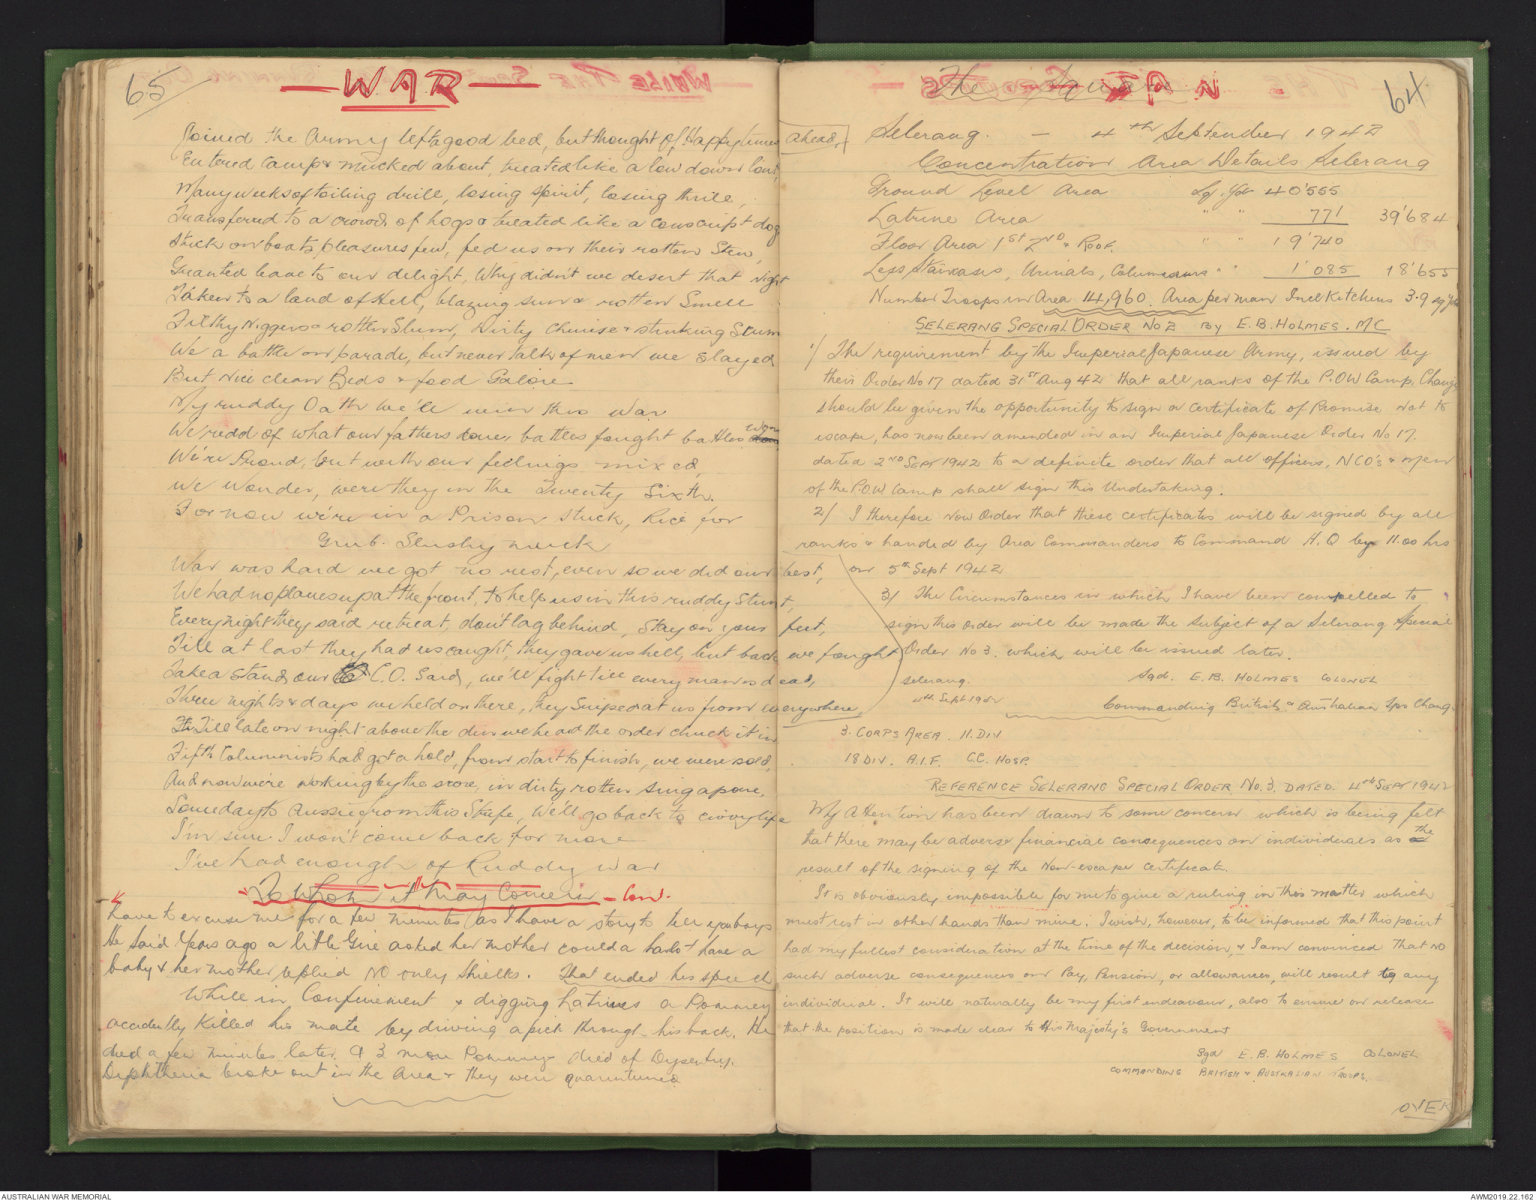 65
— WAR —
Joined the Army left a good bed, but thought of Happy times ahead,
Entered Camp & mucked about, treated like a low down lout,
Many weeks of toiling drill, losing spirit, losing thrill,
Transferred to a crowd of hogs & treated like a conscript dog
Stuck on boats, pleasures few, fed us on their rotten Stew,
Granted leave to our delight, Why didn't we desert that night
Taken to a land of Hell, blazing sun & rotten Smell
Filthy Niggers & rotten Slum, Dirty Chinese & stinking Scum
We a battle on parade, but never talk of men we slayed
But nice clean Beds & food Galore
My ruddy Oath we'll win this War
We redd of what our fathers done, battles fought battles won
We're Proud, but with our feelings mixed,
We Wonder, were they in the Twenty Sixth.
For now we're in a Prison stuck, Rice for
Grub. Slushy muck
War was hard we got no rest, even so we did our best,
We had no planes up at the front, to help us in this ruddy Stunt,
Every night they said retreat, don't lag behind, Stay on your feet,
Till at last they had us caught, they gave us hell, but back we fought
Take a stand our C.O. Said, we'll fight till every man is dead,
Three nights & days we held on there, they Sniped at us from everywhere
Till late on night above the din we heard the order chuck it in
Fifth Columnists had got a hold, from start to finish, we were sold,
And now we're working by the score, in dirty rotten Singapore.
Someday to Aussie from this Strife, We'll go back to civvy life
I'm sure I won't come back for more
I've had enough of Ruddy War
To Whom it May Concern — Cont.
have to excuse me for a few minutes as I have a story to tell you boys
He Said Years ago a little Girl asked her mother could a have a
baby & her mother replied NO only Shielks. That ended his speech
While in Confinement & digging Latrines a Pommey
accidently Killed his mate by driving a pick through his back. He
died a few minutes later. & 3 more Pommeys died of Dysentry.
Diphtheria broke out in the Area & they were quarantined
64
Selerang. — 4th September 1942
Concentration Area Details Selerang
Ground Level Area Sq. Yds 40'555
Latrine Area " " 771 39'684
Floor Area 1st 2nd & Roof. " " 19'740
Less Staircases, Urinals, Columns " " 1'085 18'655
Number Troops in Area 14,960. Area per man Incl Kitchens 3.9 sq yds
SELERANG SPECIAL ORDER No 2 By E.B. HOLMES. MC
1/ The requirement by the Imperial Japanese Army, issued by
their Order No 17 dated 31st Aug 42 that all ranks of the P.O.W Camp. Changi
should be given the opportunity to sign a certificate of Promise not to
escape, has now been amended in an Imperial Japanese Order No 17.
dated 2nd Sept 1942 to a definite order that all officers, NCO's & men
of the P.O.W Camp shall sign this Undertaking.
2/ I therefore now Order that these certificates will be signed by all
ranks & handed by Area Commanders to Command H.Q by 11.00 hrs
on 5th Sept 1942
3/ The Circumstances in which I have been compelled to
sign this order will be made the subject of a Selerang Special
Order No 3. which will be issued later.
Selerang. Sgd. E.B. HOLMES COLONEL
4th Sept 1942
Commanding British & Australian Tps Changi
3. CORPS AREA. 11. DIV
18 DIV. A.I.F. C.C. HOSP.
REFERENCE SELERANG SPECIAL ORDER No. 3. DATED. 4th SEPT 1942
My Attention has been drawn to some concern which is being felt
that there may be adverse financial consequences on individuals as the
result of the signing of the Non-escape certificate.
It is obviously impossible for me to give a ruling in this matter which
must rest in other hands than mine. I wish, however, to be informed that this point
had my fullest consideration at the time of the decision, & I am convinced that no
such adverse consequences on Pay, Pension, or allowances, will result to any
individual. It will naturally be my first endeavour, also to ensure on release
that the position is made clear to His Majesty's Government
Sgd E.B. HOLMES COLONEL
COMMANDING BRITISH & AUSTRALIAN TROOPS.
OVER
AUSTRALIAN WAR MEMORIAL
AWM2019.22.162